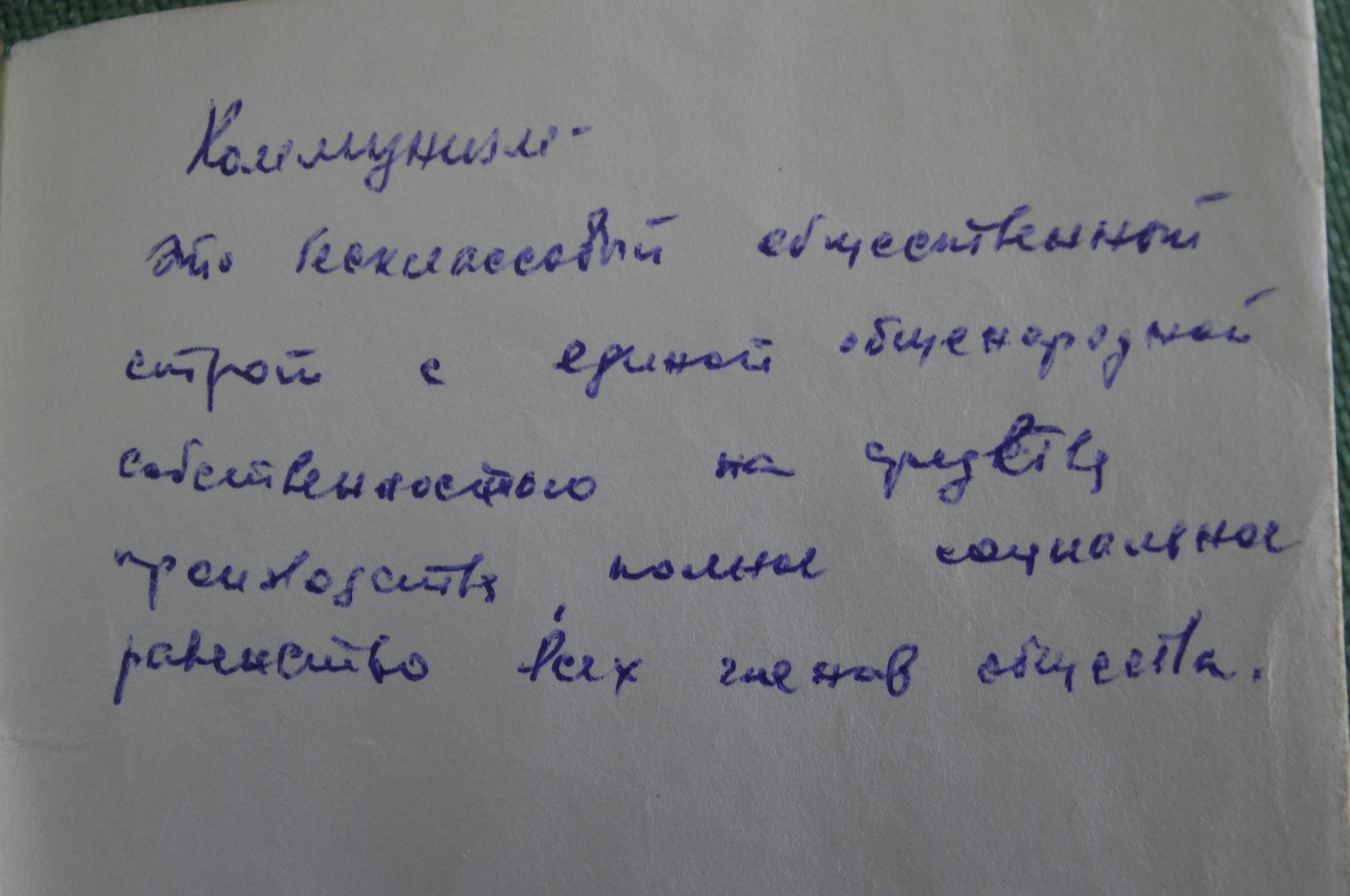 Коммунизм-
это бесклассовый общественный
строй с единой общенародной
собственностью на средства
производства, полное социальное
равенство всех членов общества.